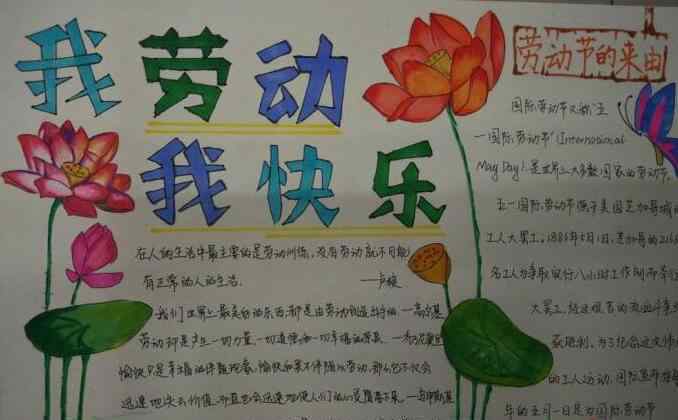 我劳动
我快乐
在人的生活中最主要的是劳动训练。没有劳动就不可能
有正常的人的生活。
——卢梭
我们世界上最美好的东西都是由劳动创造出来的。——高尔基
劳动却是产生一切力量、一切道德和一切幸福的
愉快只是幸福的伴随现象，愉快如果不伴随以劳动，那么它不仅会
迅速地失去价值，而且也会迅速地使人们的心灵堕落下来。
劳动节的来由
国际劳动节又称“五
一国际劳动节”(International
May Day)，是世界上大多数国家的劳动节。
五一国际劳动节源于美国芝加哥城的
工人大罢工。1886年5月1日，芝加哥的216
名工人为争取实行八小时工作制而举行
大罢工，经过艰苦的流血斗争
获胜利。为了纪念这次伟
的工人运动，国际
年的五月一日是为国际劳动